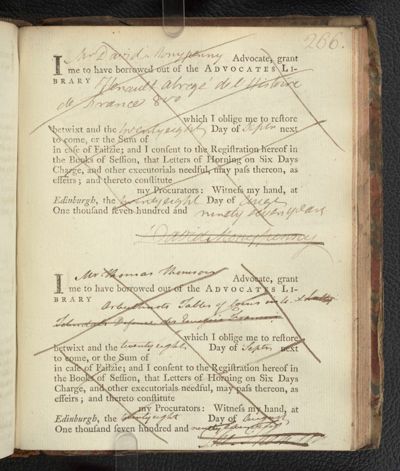 266.
I Mr David Monypenny Advocate, grant
me to have borrowed out of the ADVOCATES LI-
BRARY Henault abregé del Histoire
de France 8vo
which I oblige me to restore
'betwixt and the twenty eight Day of Septr next
to come, or the Sum of
in case of Failzie; and I consent to the Registration hereof in
the Books of Session, that Letters of Horning on Six Days
Charge, and other executorials needful, may pass thereon, as
effeirs; and thereto constitute
my Procurators: Witness my hand, at
Edinburgh, the twenty eight Day of
One thousand seven hundred and ninety seven years
David Monypenny
I Mr Thomas Thomson Advocate, grant
me to have borrowed out of the ADVOCATES LI-
BRARY Arbuthnots Tables of Coins in 4.

which I oblige me to restore
betwixt and the twenty eight Day of Septr next
to come, or the Sum of
in case of Failzie; and I consent to the Registration hereof in
the Books of Session, that Letters of Horning on Six Days
Charge, and other executorials needful, may pass thereon, as
effeirs; and thereto constitute
my Procurators: Witness my hand, at
Edinburgh, the twenty eight Day of August
One thousand seven hundred and ninety